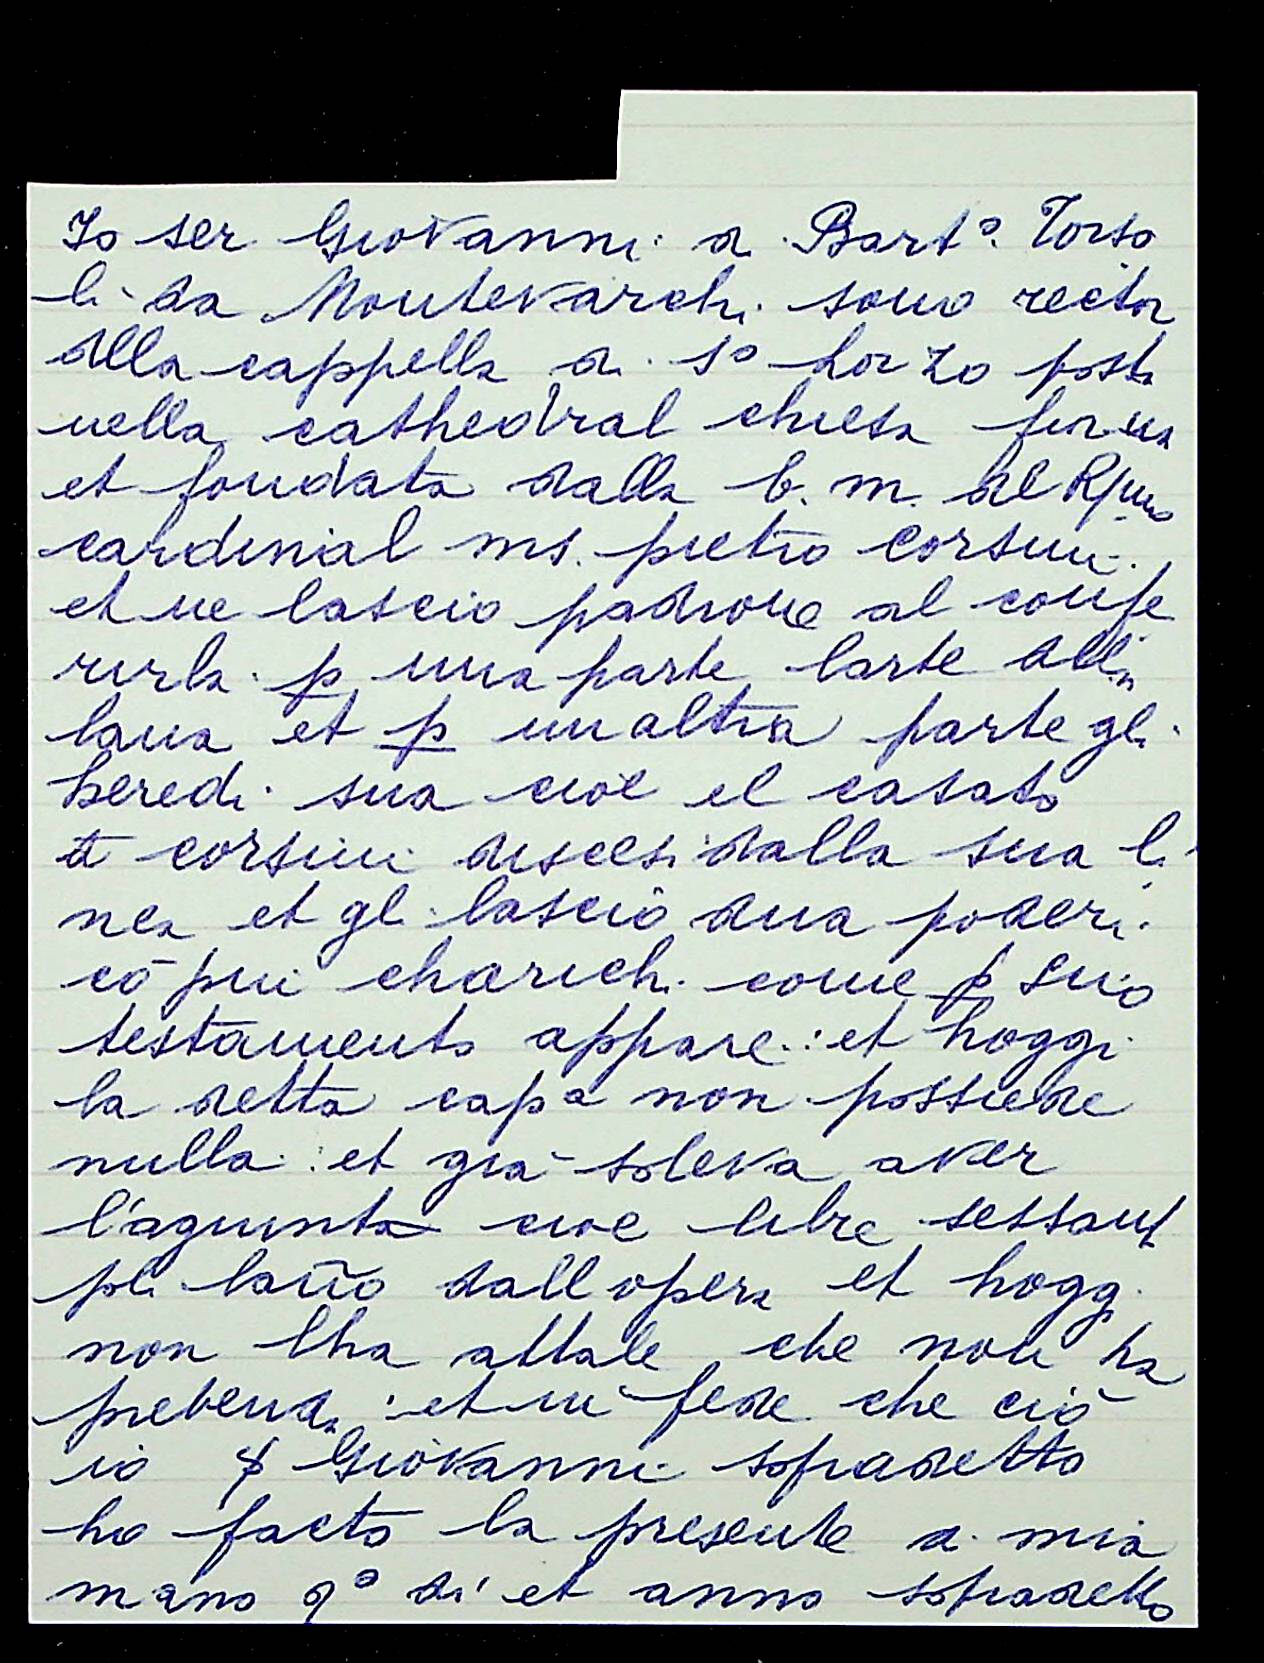 Io ser Giovanni di Bart° Torso
li da Montevarchi sono rector
della cappella di s° Lorzo posta
nella cathedral chiesa fior.na
et fondata dalla b. m. del R/mo
cardinal ms. pietro corsini.
et ne lascio padrone al confe
rirla. p una parte larte della
lana et p un altra parte gli
heredi sua cioe el casato
de corsini discesi dalla sua li
nea et gli lasciò dua poderi.
cō piu charichi come p suo
testamento appare: et hoggi
la detta capª non possiede
nulla: et già soleva aver
l'agiunta cioe libre sessant
pli lañо dall opera et hoggi
non lha attale che non ha
prebenda: et in fede che ciò
io Giovanni sopradetto
ho facto la presente di mia
mano q° di et anno sopradetto